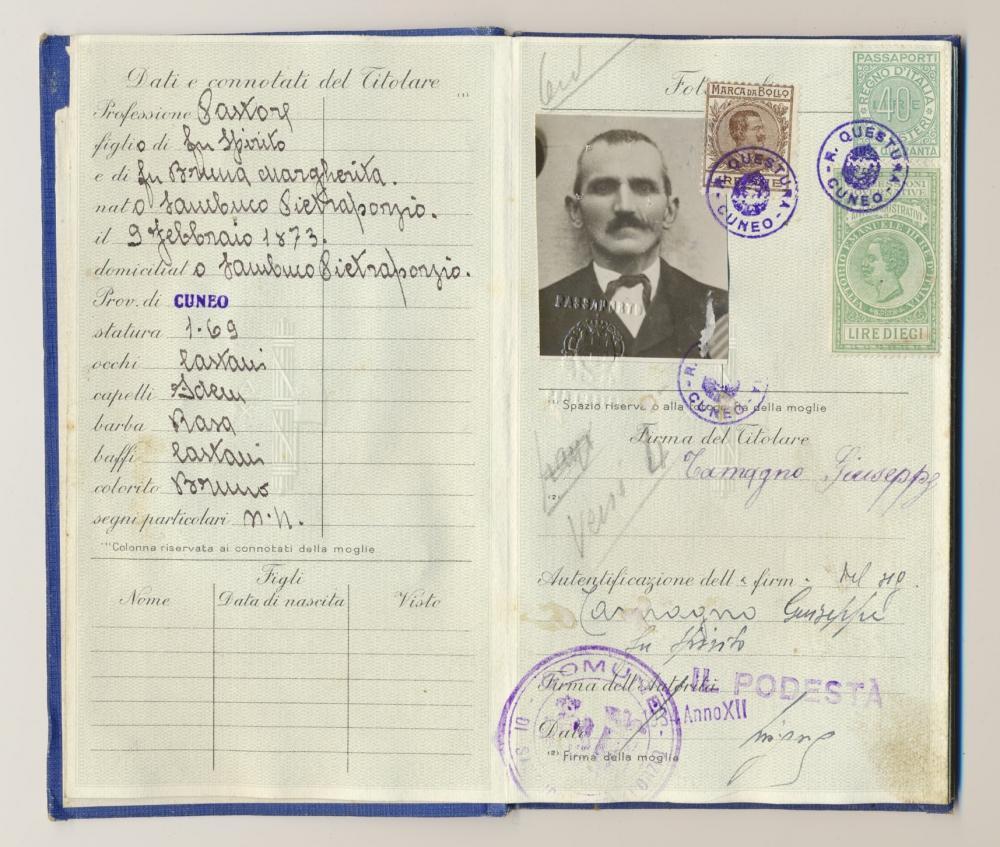 Dati e connotati del Titolare
(1)
Professione Pastore
figlio di fu Spirito
e di fu Bruna Margherita.
nato Sambuco Pietraporzio.
il 9 Febbraio 1873.
domiciliato Sambuco Pietraporzio.
Prov. di CUNEO
statura 1.69
occhi Castani
capelli Idem
barba Rasa
baffi Castani
colorito Bruno
segni particolari n.n.
(1) Colonna riservata ai connotati della moglie
Figli
Nome Data di nascita Visto
MARCA DA BOLLO
R. QUESTURA - CUNEO -
PASSAPORTI
REGNO D'ITALIA
LIRE
40
R. QUESTURA - CUNEO -
LIRE DIECI
PASSAPORTI
CUNEO
Spazio riservato alla fotografia della moglie
Firma del Titolare
Tamagno Giuseppe
(2)
Verso
Autentificazione dell firm del sig.
Tamagno Giuseppe
fu Spirito
COMUNE
Firma dell'Autorità
IL PODESTÀ
Anno XII
Data
(2) Firma della moglie